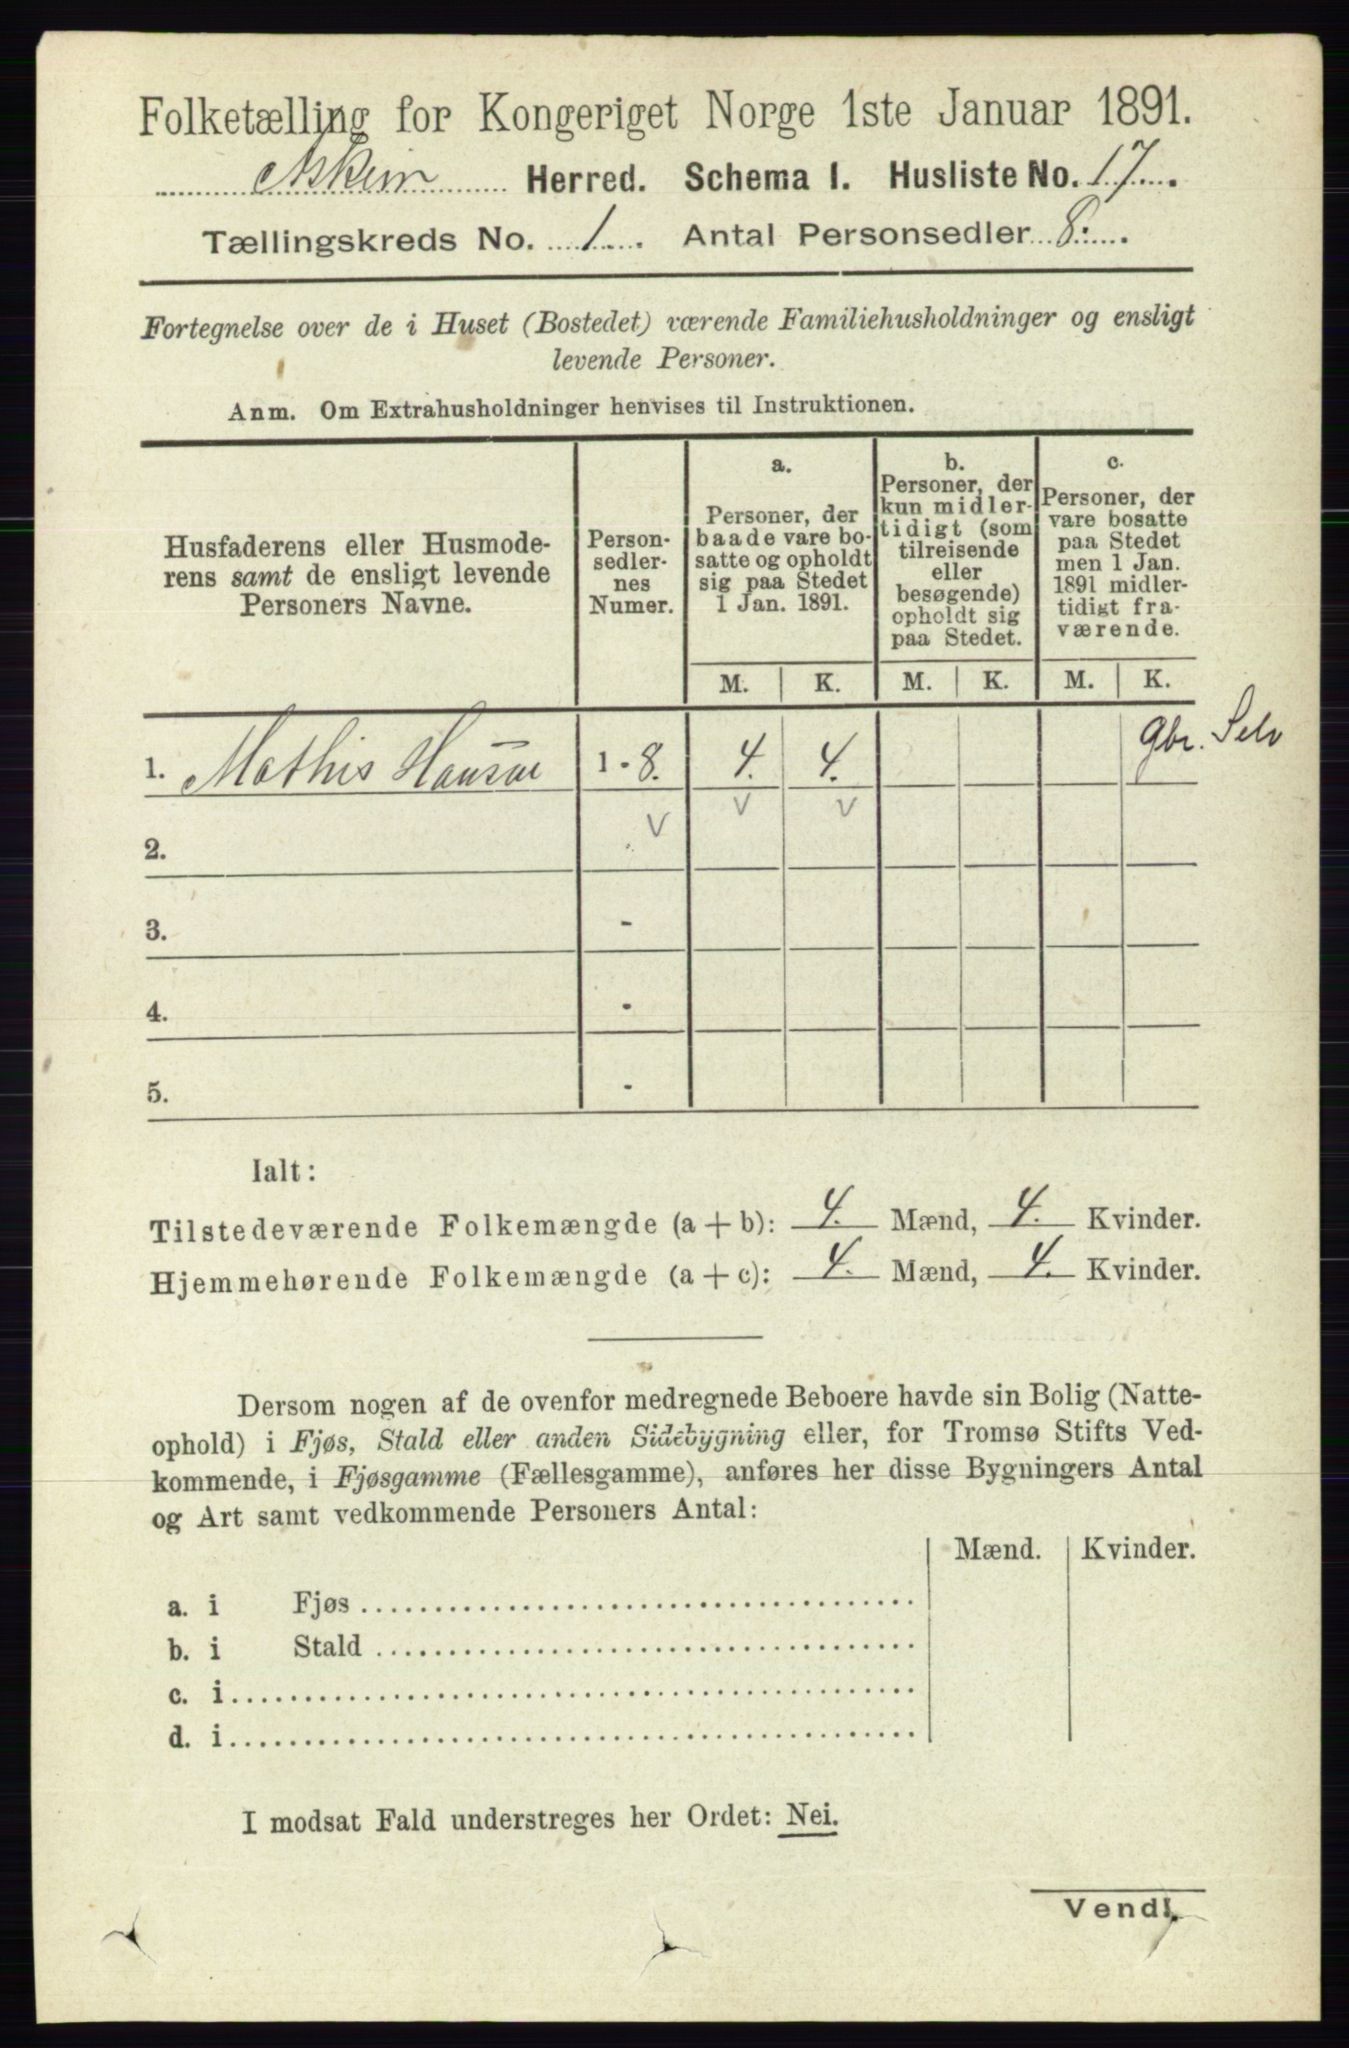 Folketælling for Kongeriget Norge 1ste Januar 1891.
Askim Herred. Schema I. Husliste No. 17.
Tællingskreds No. 1. Antal Personsedler 8.
Fortegnelse over de i Huset (Bostedet) værende Familiehusholdninger og ensligt
levende Personer.
Anm. Om Extrahusholdninger henvises til Instruktionen.
Husfaderens eller Husmode-
rens samt de ensligt levende
Personers Navne.
Person-
sedler-
nes
Numer.
a.
Personer, der
baade vare bo-
satte og opholdt
sig paa Stedet
1 Jan. 1891.
b.
Personer, der
kun midler-
tidigt (som
tilreisende
eller
besøgende)
opholdt sig
paa Stedet.
c.
Personer, der
vare bosatte
paa Stedet
men 1 Jan.
1891 midler-
tidigt fra-
værende.
M. K. M. K. M. K.
1. Mathis Hansen 1 - 8. 4. 4. Gbr. Selv
v v v
2.
3. -
4. -
5. -
Ialt:
Tilstedeværende Folkemængde (a + b): 4. Mænd, 4. Kvinder.
Hjemmehørende Folkemængde (a + c): 4. Mænd, 4. Kvinder.
Dersom nogen af de ovenfor medregnede Beboere havde sin Bolig (Natte-
ophold) i Fjøs, Stald eller anden Sidebygning eller, for Tromsø Stifts Ved-
kommende, i Fjøsgamme (Fællesgamme), anføres her disse Bygningers Antal
og Art samt vedkommende Personers Antal:
Mænd. Kvinder.
a. i Fjøs
b. i Stald
c. i
d. i
I modsat Fald understreges her Ordet: Nei.
Vend!